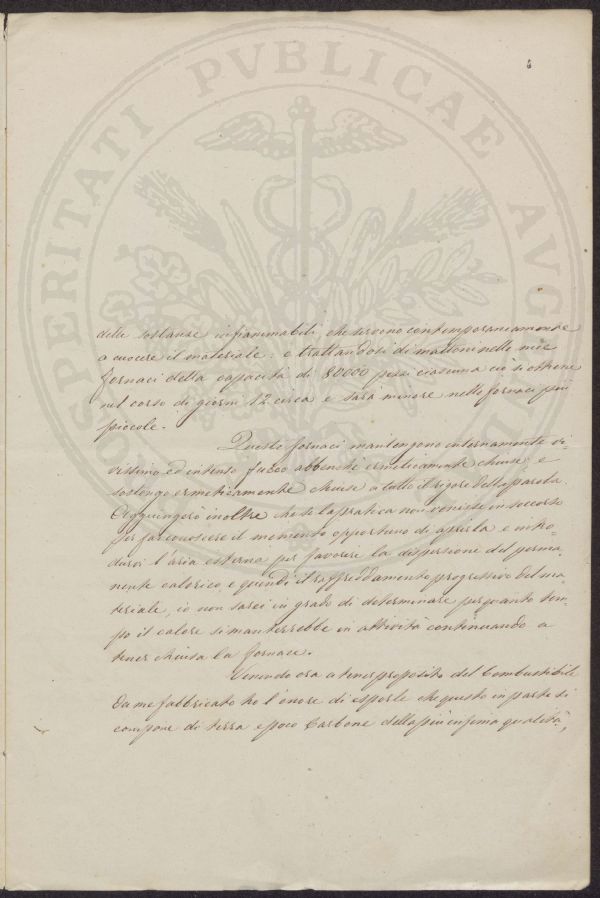 6
PROSPERITATI PVBLICAE AVGENDAE
delle sostanze infiammabili che servono contemporaneamente
a cuocere il materiale: e trattandosi di mattoni nelle mie
fornaci della capacità di 80000 pezzi ciascuna ciò si ottiene
nel corso di giorni 12 circa e sarà minore nelle fornaci più
piccole.
Queste fornaci mantengono internamente vi-
vissimo ed intento fuoco abbenchè ermeticamente chiuse; e
sostengo ermeticamente chiuse a tutto il rigore della parola.
Aggiungerò inoltre che se la pratica non venisse in soccorso
per far conoscere il momento opportuno di aprirla e intro-
durvi l'aria esterna per favorire la dispersione del perma-
nente calorico, e quindi il raffreddamento progressivo del ma-
teriale, io non sarei in grado di determinare per quanto tem-
po il calore si manterrebbe in attività continuando a
tener chiusa la fornace.
Venendo ora a tener proposito del Combustibile
da me fabbricato ho l'onore di esporle che questo in parte si
compone di terra e poco Carbone della più infima qualità,